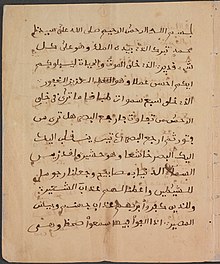 بسم الله الرحمن الرحيم صلى الله على سيدنا
محمد تبرك الذي بيده الملك وهو على كل
شيء قدير الذي خلق الموت والحياة ليبلوكم
ايكم احسن عملا وهو العزيز الغفور
الذي خلق سبع سموات طباقا ما ترى في خلق
الرحمن من تفاوت فارجع البصر هل ترى من
فتور ثم ارجع البصر ينقلب اليك
اليك البصر خاسئا وهو حسير ولقد زينا
السماء الدنيا بمصابيح وجعلنا رجوما
للشيطين واعتدنا لهم عذاب السعير
وللذين كفروا بربهم عذاب جهنم وبيس
المصير اذا القوا فيها سمعوا وهي